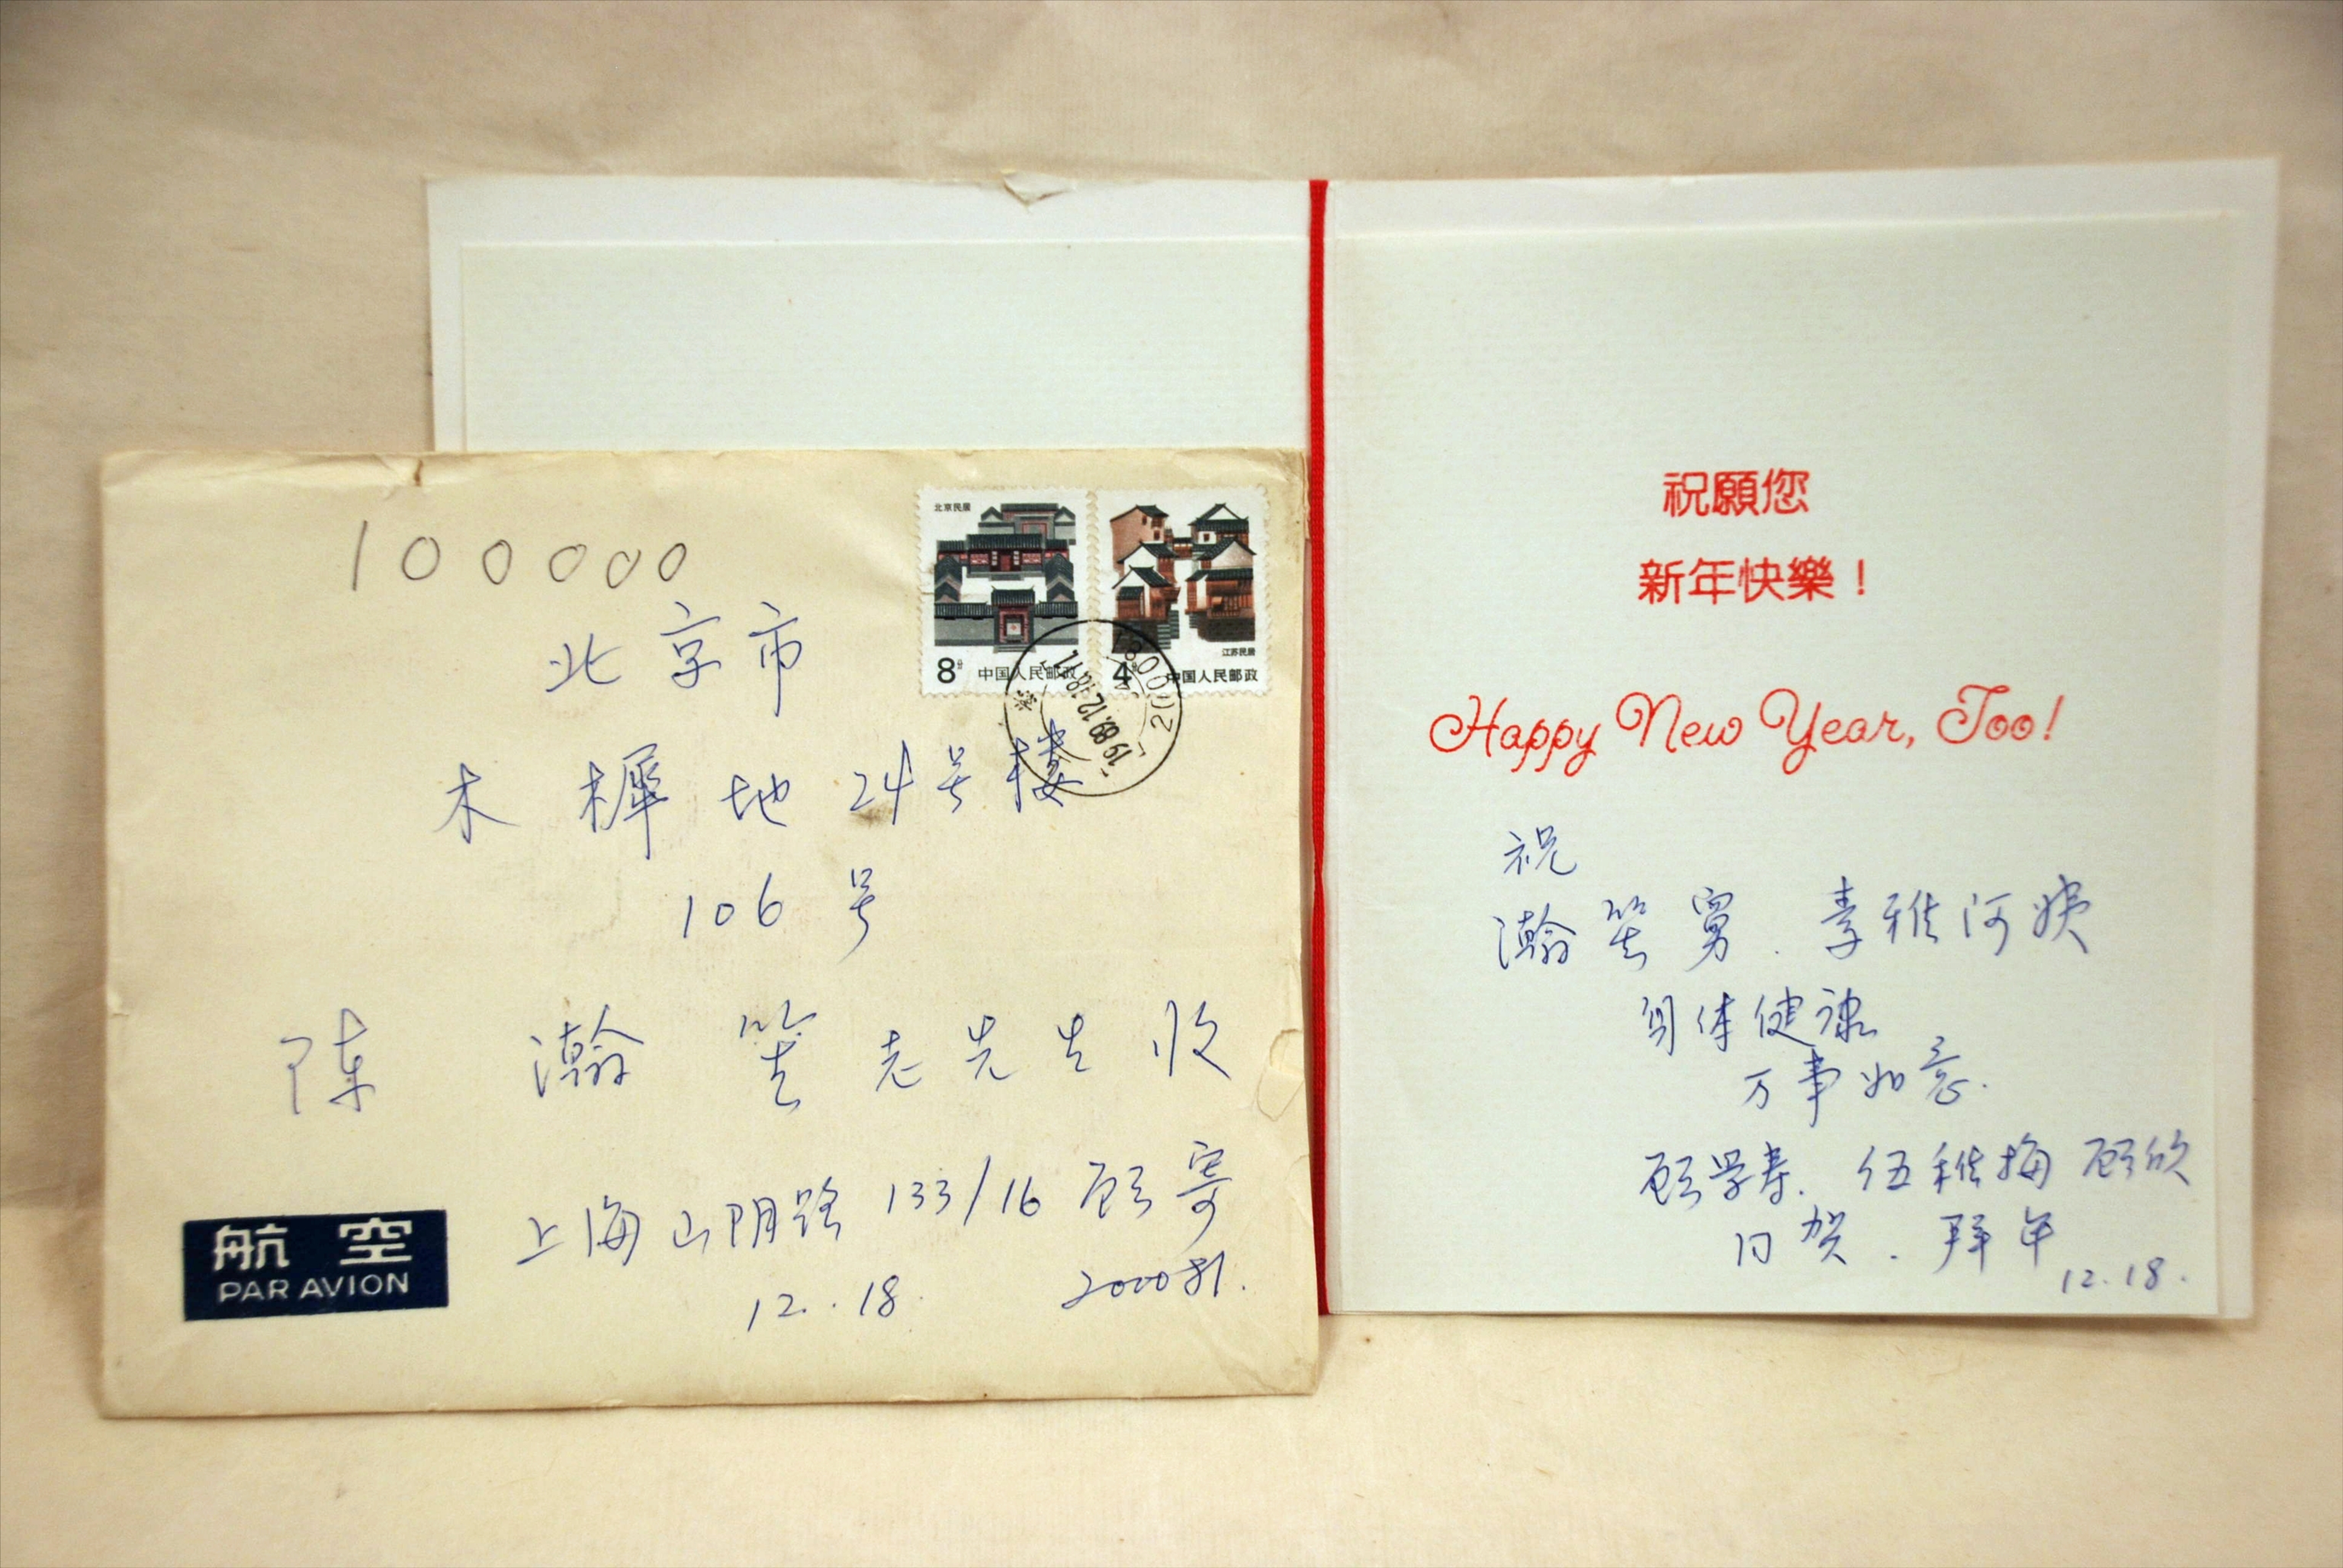 100000
北京市
木樨地24号楼
106号
陈瀚笙老先生收
上海山阴路 133/16 顾寄
12.18 200081.
航空
PAR AVION
北京民居
8分 中国人民邮政
江苏民居
4分 中国人民邮政
1989.12.18.11
祝願您
新年快樂！
Happy New Year, Too!
祝
瀚笙舅.素雅阿姨
身体健康
万事如意.
顾学寿. 伍稚梅 顾欣
同贺.拜年
12.18.